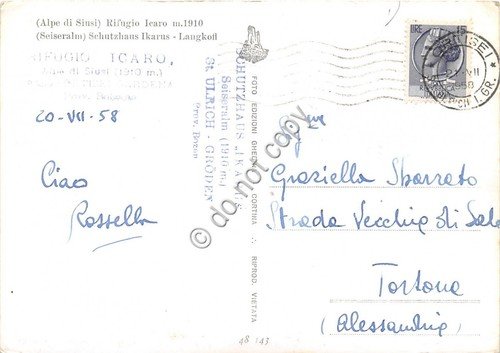 (Alpe di Siusi) Rifugio Icaro m.1910
(Seiseralm) Schutzhaus Ikarus - Langkofl
RIFUGIO ICARO,
Alpe di Siusi (1910 m.)
20-VII-58
Ciao
Rossella
SCHUTZHAUS „IKARUS"
Seiseralm (1910 m.)
St. ULRICH GRÖDEN
Prov. Bozen
FOTO EDIZIONI GHEDINA CORTINA
RIPROD. VIETATA
LIRE
ORTISEI
VII
1958
Graziella Sbarrato
Strada Vecchia di Sale
Tortona
(Alessandria)
48.143
do not copy